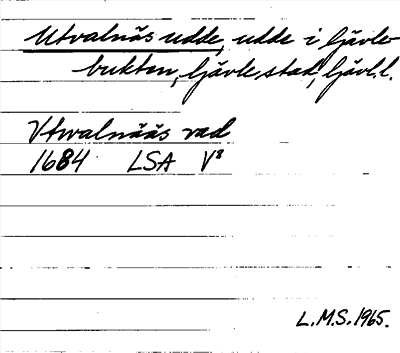 Utvalnäs udde, udde i Gävle-
bukten, Gävle stad, Gävl. l.
Vtwalnääs udd
1684 LSA V⁸
L.M.S. 1965.